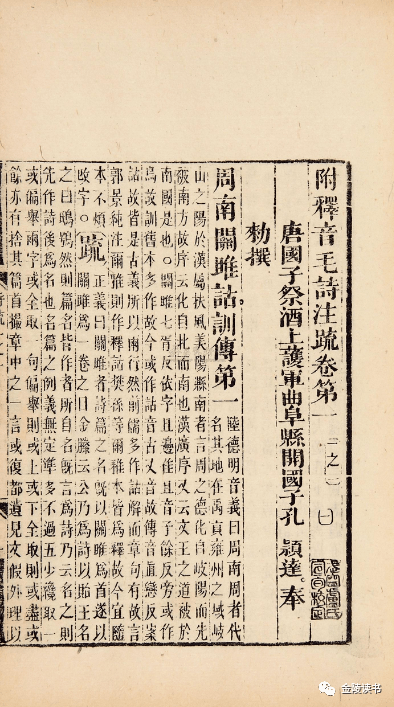 附釋音毛詩注疏卷第一 一之一
唐國子祭酒上護軍曲阜縣開國子孔 穎達 奉
勑撰
周南關雎詁訓傳第一
陸德明音義曰周南周者代
名其地在禹貢雍州之域岐
山之陽於漢屬扶風美陽縣南者言周之德化自岐陽而先
被南方故序云化自北而南也漢廣序又云文王之道被於
南國是也○關雎七胥反依字且邊隹且音子餘反旁或作
鳥故訓舊本多作故今或作詁音古又音故傳音直戀反案
詁故皆是古義所以兩行然前儒多作詁解而章句有故言
郭景純注爾雅則作釋詁樊孫等爾雅本皆爲釋故今宜隨
本不煩
改字○
疏
正義曰關雎者詩篇之名既以關雎爲首遂以
關雎爲一卷之目金縢云公乃爲詩以貽王名
之曰鴟鴞然則篇名皆作者所自名既言爲詩乃云名之則
先作詩後爲名也名篇之例義無定準多不過五少纔取一
或偏舉兩字或全取一句偏舉則或上或下全取則或盡或
餘亦有捨其篇首撮章中之一言或復都遺見文假外理以
金陵读书